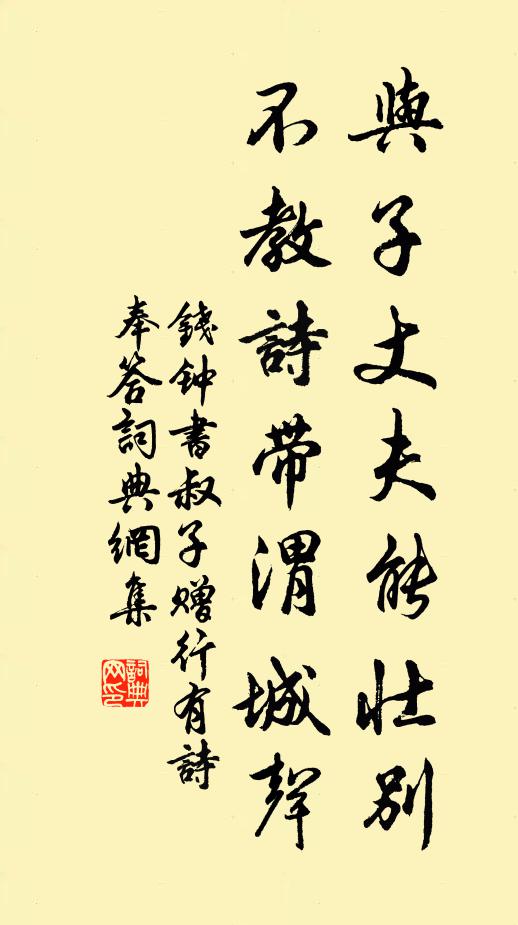 與子丈夫能壯別
不教詩帶渭城聲
錢钟書叔子赠行有詩
奉答詞典網集
詞典網印